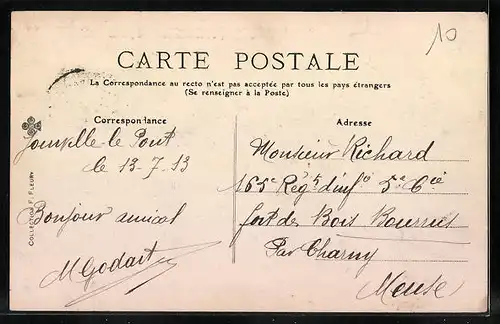 10
CARTE POSTALE
La Correspondance au recto n'est pas acceptée par tous les pays étrangers
(Se renseigner à la Poste)
Correspondance
Joinville-le Pont
le 13-7-13
Bonjour amical
M Godart
COLLECTION F. FLEURY
Adresse
Monsieur Richard
165e Régt d'infie 5e Cie
fort de Bois Bourrus
Par Charny
Meuse